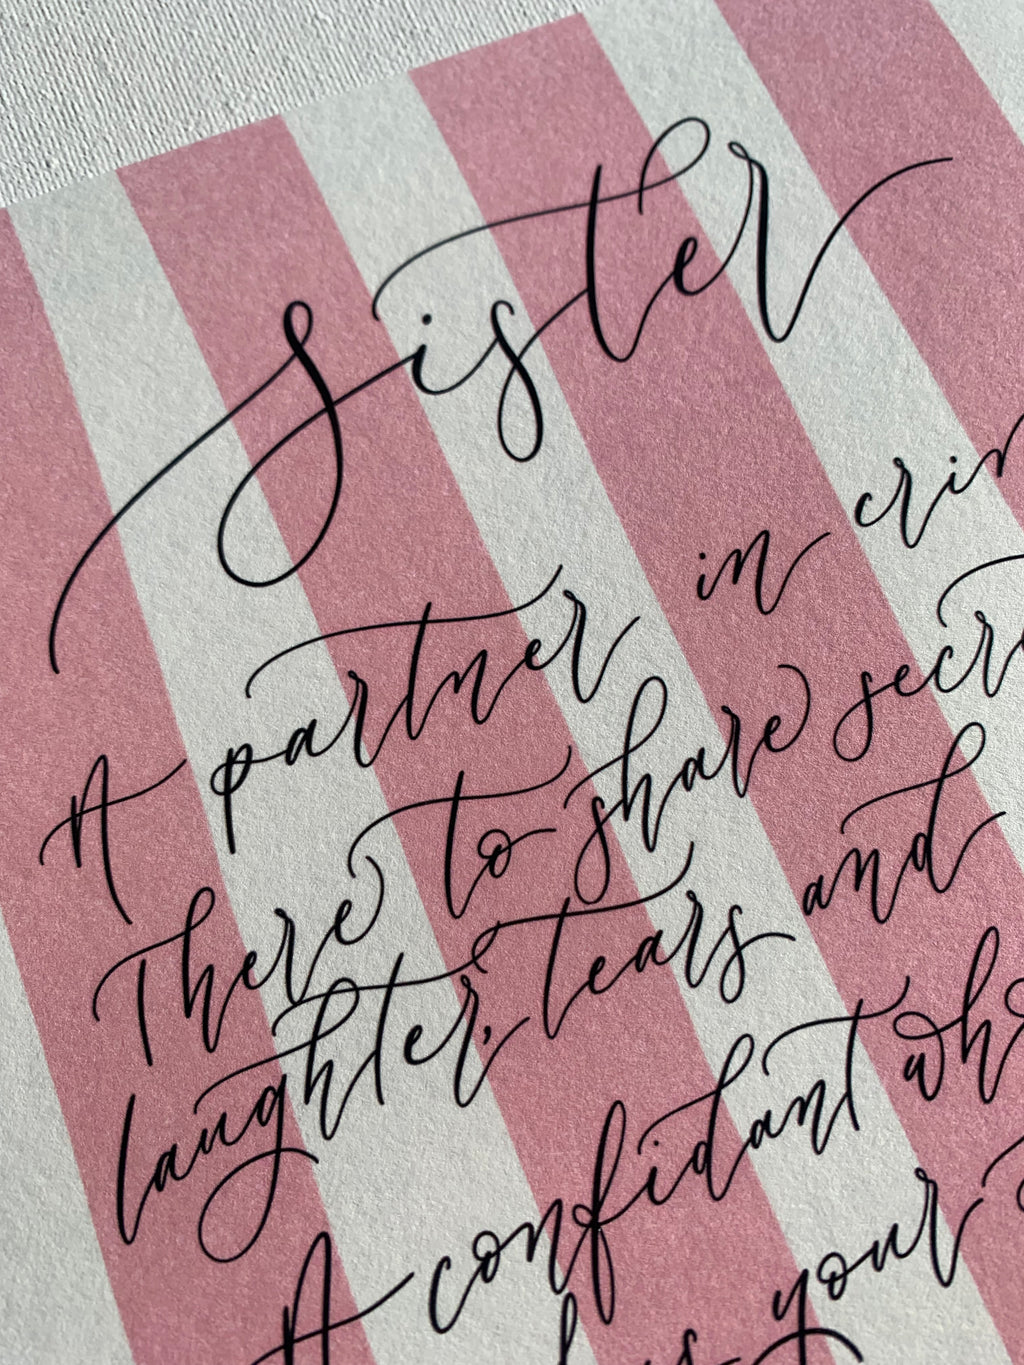 Sister
A partner in crim
There to share secr
laughter, tears and
A confidant wh
your